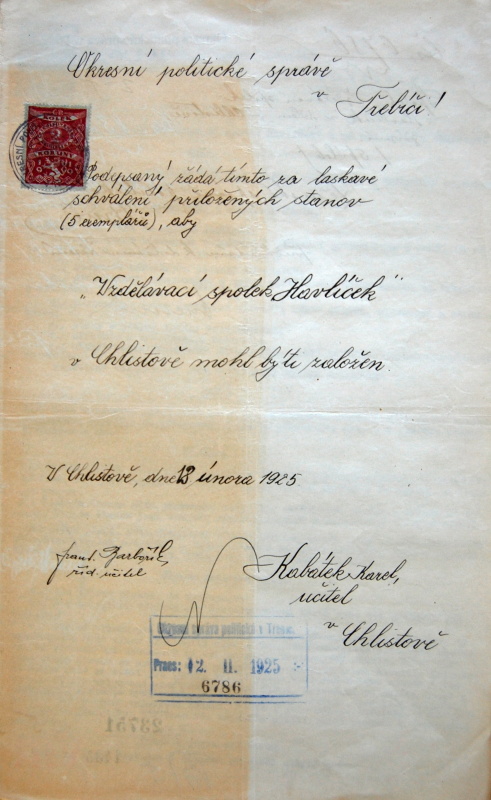 Okresní politické správě
v Třebíči!
Podepsaný žádá tímto za laskavé
schválení přiložených stanov
(5 exemplářů), aby
„Vzdělávací spolek Havlíček"
v Chlistově mohl býti založen.
V Chlistově, dne 12 února 1925
Frant.
říd. učitel
Kabátek Karel,
učitel
v Chlistově
Okresní správa politická v Třebíči.
Praes: 12. II. 1925
6786
23751